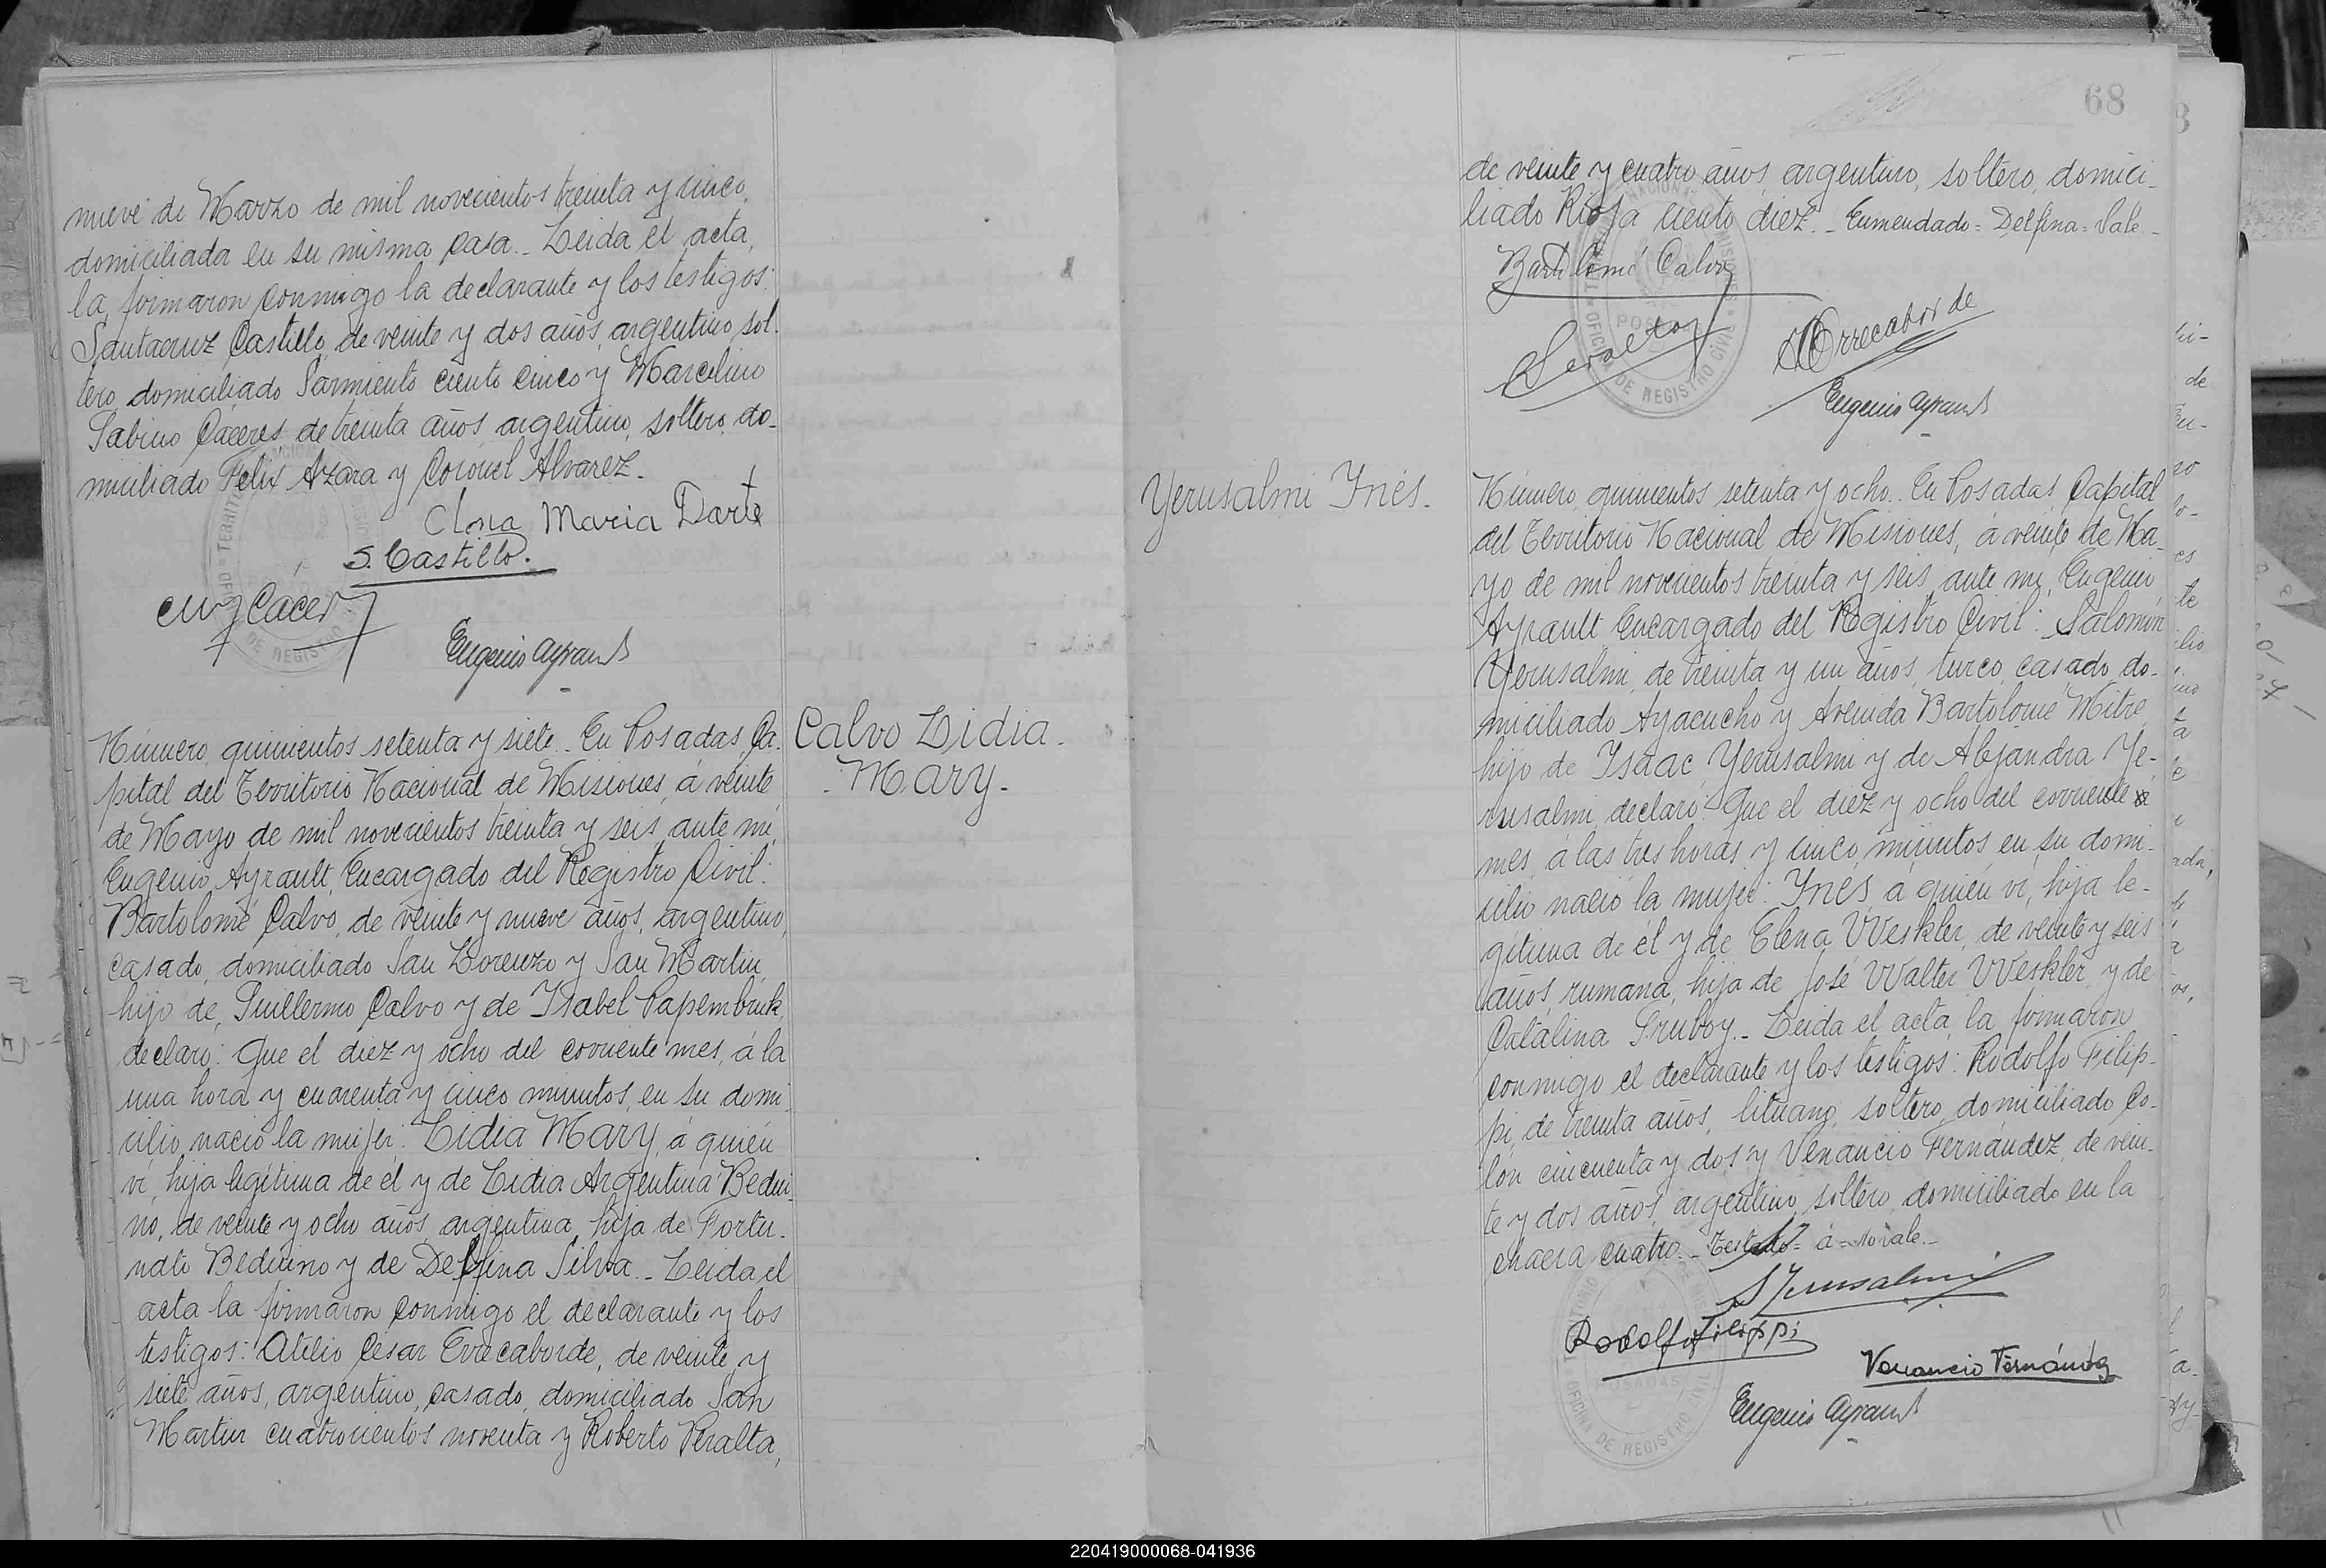 nueve de Marzo de mil novecientos treinta y cinco,
domiciliada en su misma casa._ Leida el acta,
la firmaron conmigo la declarante y los testigos:
Santacruz Castillo, de veinte y dos años, argentino, sol-
tero, domiciliado Sarmiento ciento cinco y Marcelino
Sabino Cáceres, de treinta años, argentino, soltero, do-
miciliado Felix Azara y Coronel Alvarez._
Ana Maria Darte
S. Castillo.
Eugenio Ayrault
Número, quinientos setenta y siete._ En Posadas, Ca-
pital del Territorio Nacional de Misiones, á veinte
de Mayo de mil novecientos treinta y seis, ante mi,
Eugenio Ayrault, Encargado del Registro Civil:
Bartolomé Calvo, de veinte y nueve años, argentino,
casado, domiciliado San Lorenzo y San Martin,
hijo de Guillermo Calvo y de Isabel Papembruk,
declaró: Que el diez y ocho del corriente mes, á la
una hora y cuarenta y cinco minutos, en su domi-
cilio, nació la mujer: Lidia Mary, á quién
ví, hija legítima de él y de Lidia Argentina Bedui-
no, de veinte y ocho años, argentina, hija de Fortu-
nato Beduino y de Delfina Silva._ Leida el
acta la firmaron conmigo el declarante y los
testigos: Atilio César Errecaborde, de veinte y
siete años, argentino, casado, domiciliado San
Martin cuatrocientos noventa y Roberto Peralta,
Calvo Lidia
Mary.
68
de veinte y cuatro años, argentino, soltero, domici-
liado Rioja ciento diez._ Enmendado=Delfina=Vale._
Bartolomé Calvo
Eugenio Ayrault
Yerusalmi Inés.
Número, quinientos setenta y ocho._ En Posadas, Capital
del Territorio Nacional de Misiones, á veinte de Ma-
yo de mil novecientos treinta y seis, ante mi, Eugenio
Ayrault Encargado del Registro Civil: Salomón
Yerusalmi, de treinta y un años, turco, casado, do-
miciliado Ayacucho y Avenida Bartolomé Mitre,
hijo de Isaac Yerusalmi y de Alejandra Ye-
rusalmi, declaró: Que el diez y ocho del corriente á
mes, á las tres horas y cinco minutos en su domi-
cilio nació la mujer: Inés, á quién ví, hija le-
gítima de él y de Elena Weskler, de veinte y seis
años, rumana, hija de José Walter Weskler y de
Catalina Sruboy._ Leida el acta, la firmaron
conmigo el declarante y los testigos: Rodolfo Filip-
pi, de treinta años, lituano, soltero, domiciliado Co-
lón cincuenta y dos y Venancio Fernández, de vein-
te y dos años, argentino, soltero, domiciliado en la
chacra cuatro._ Testado=á=No vale._
S Jerusalmi
Rodolfo Filippi
Venancio Fernández
Eugenio Ayrault
220419000068-041936